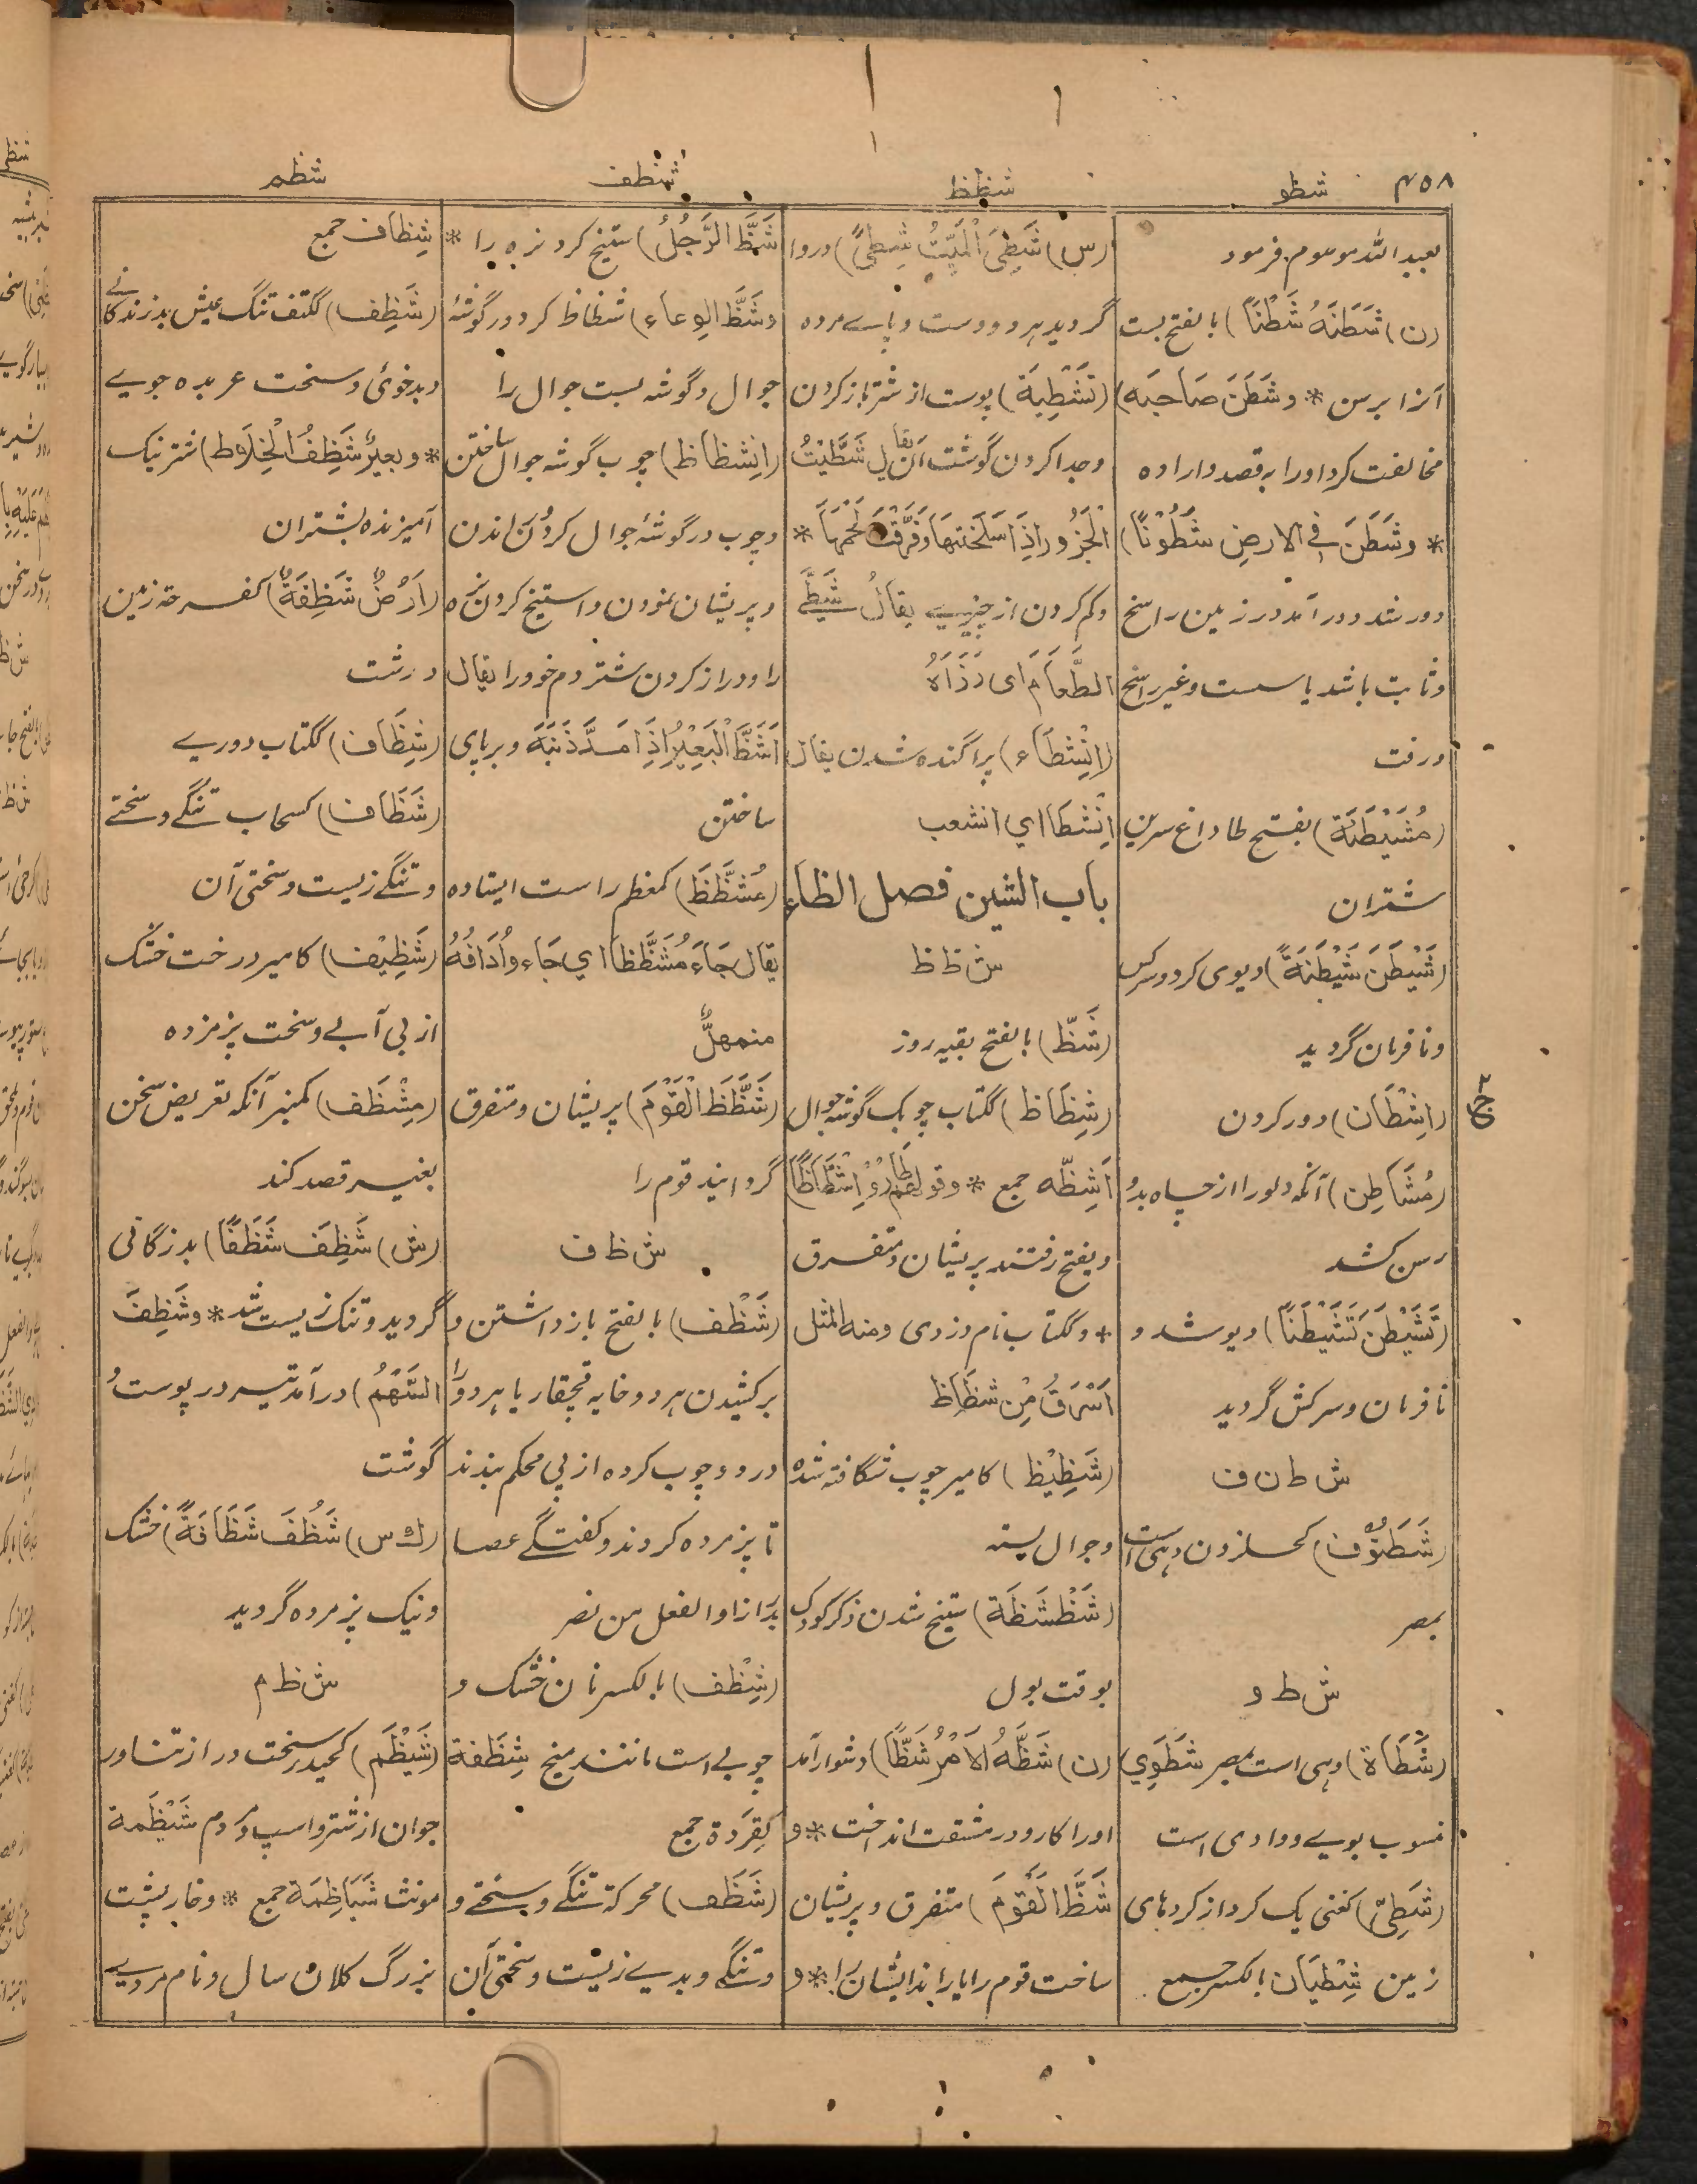 ۴۵۸
شطو
شظظ
شظف
شظم
بعبد الله موسوم فرمود
(ن) شَطَنَهُ شَطْنًا) بالفتح بست
آنرا برسن * وشَطَنَ صَاحبَه)
مخالفت کرد اورا بقصد و اراده
* وشَطَنَ فی الارضِ شُطُوْنًا)
دور شد و در آمد در زمین راسخ
و ثابت باشد یا سست و غیر راسخ
و رفت
(مُشَيْطَنَة) بفتح طا داغ سرین
شتران
(شَيْطَنَ شَيْطَنَةً) دیوی کرد و سرکش
و نافرمان گردید
(اِشْطَان) دور کردن
(مُشَاطِن) آنکه دلو را از چاه بدو
رسن کشد
(تَشَيْطَنَ تَشَيْطُنًا) دیو شد و
نافرمان و سرکش گردید
ش ط ن ف
(شَطَنُوْف) کحلزون دهی است
بمصر
ش ط و
(شَطَاة) دهی است بمصر شَطَوِي
منسوب بوی و وادی است
(شَطِيّ) کغنی یک کرد از کردهای
زمین شِطْيَان بالکسر جمع
(س) شَطِیَ الْمَيِّتُ شِطِیً) دروا
گردید هر دو دست و پای مرده
(تَشْطِيَة) پوست از شتر باز کردن
وجدا کردن گوشت آن يقال شَطَّيْتُ
الْجَزُورَ اذَا سَلَخْتَهَا وَفَرَّقْتَ لَحْمَهَا *
وکم کردن از چیزی یقال شَطَّے
الطَّعَامَ ای رَزَأَهُ
(اِنْشِطَاء) پراگنده شدن یقال
اِنْشَطَا اي انشعب
باب الشین فصل الظاء
ش ظ ظ
(شَظّ) بالفتح بقیه روز
(شِظَاظ) ککتاب چوبک گوشه جوال
اَشِظَّه جمع * وقولهم طَارُوْا شَظَاظًا
و بفتح رفتند پریشان و متفرق
* و ککتاب نام دزدی ومنه المثل
اَسْرَقُ مِنْ شظَاظ
(شَظِيْظ) کامیر چوب شگافته شده
و جوال بسته
(شَظْشَظَة) ستیخ شدن ذکر کودک
بوقت بول
(ن) شَظَّهُ الاَمْرُ شَظًّا) دشوار آمد
اورا کار و در مشقت انداخت * و
شَظَّ الْقَوْمَ) متفرق و پریشان
ساخت قوم را یا راند ایشان را * و
شَظَّ الرَّجُلُ) ستیخ کرد نره را *
وشَظَّ الوِعاء) شظاظ کرد در گوشهٔ
جوال و گوشه بست جوال را
(اِشظَاظ) چوب گوشه جوال ساختن
وچوب در گوشهٔ جوال کردن و راندن
و پریشان نمودن و استیخ کردن نره
را و دراز کردن شتر دم خود را یقال
اَشَظَّ الْبَعِيْرُ اِذَا مَدَّ ذَنَبَهُ و برپای
ساختن
(مُشَظَّظ) کمعظم راست ایستاده
یقال جَاءَ مُشَظَّظًا اي جَاء واُدَافُهُ
متمهلٌّ
(شَظَّظَ الْقَوْمَ) پریشان و متفرق
گردانید قوم را
ش ظ ف
(شَظْف) بالفتح باز داشتن و
برکشیدن هر دو خایه قچقار یا هر دو را
در دو چوب کرده از پی محکم بندند
تا پژمرده گردند و کفتگے عصا
بدرازا والفعل من نصر
(شِظْف) بالکسر نان خشک و
چوبی است مانند میخ شِظَفة
کقِرَدَة جمع
(شَظَف) محرکة تنگے و سختے و
و تنگے و بدے زیست و سختی آن
شِظاف جمع
(شَظِف) ککتف تنگ عیش بد زندگانے
و بدخوئی و سخت عربده جوے
* وبعيرٌ شَظِفُ الْخِلَاط) شتر نیک
آمیزنده بشتران
(اَرْضٌ شَظِفَةٌ) کفرحة زمین
درشت
(شِظَاف) ککتاب دورے
(شَظَاف) کسحاب تنگے و سختے
و تنگے زیست و سختی آن
(شَظِيْف) کامیر درخت خشک
از بی آبے و سخت پژمرده
(مِشْظَف) کمنبر آنکه تعریض سخن
بغیر قصد کند
(س) شَظِفَ شَظَفًا) بد زندگانی
گردید و تنگ زیست شد * وشَظِفَ
السَّهْمُ) در آمد تیر در پوست و
گوشت
(ك س) شَظُفَ شَظَافَةً) خشک
و نیک پژمرده گردید
ش ظ م
(شَيْظَم) کحیدر سخت دراز تناور
جوان از شتر و اسپ و مردم شَيْظَمة
مونث شَيَاظِمَة جمع * و خارپشت
بزرگ کلان سال و نام مردے